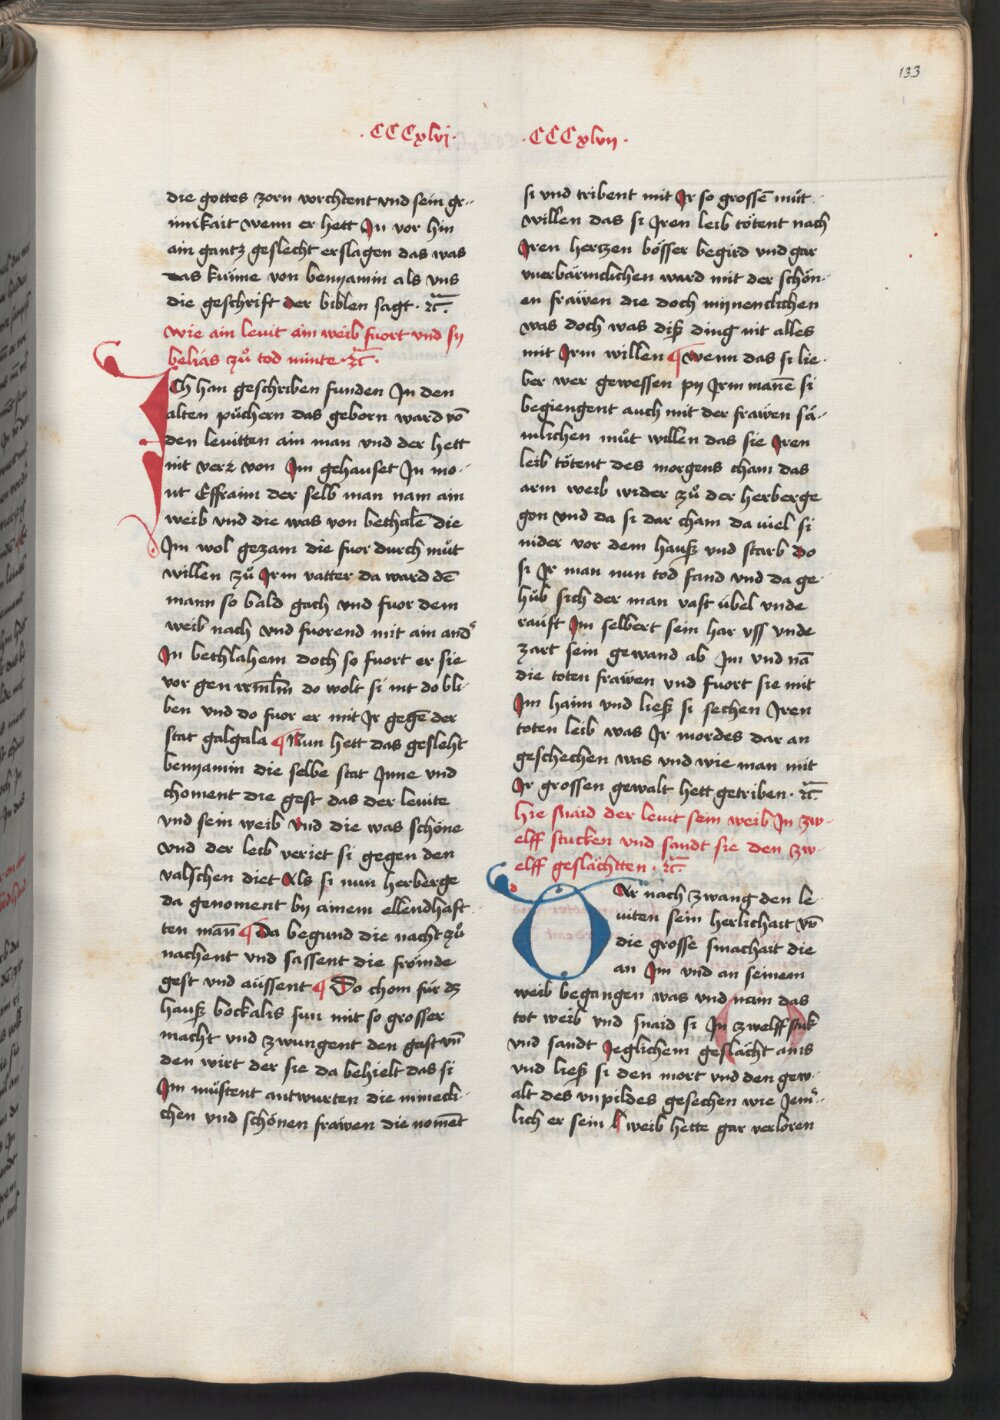 133
·CCCxlvj·
·CCCxlvij·
die gottes zorn vorchtent vnd sein gr-
imikait wenn er hett Jn vor hin
ain gantz geslecht erslagen das was
das kúnne von benyamin als vns
die geschrift der biblen sagt · ꝛc̄·
wie ain leuit ain weib fuort vnd sy
belias zů tod minte · ꝛc̄
ICh han geschriben funden Jn den
alten půchern das geborn ward vō
den leuitten ain man vnd der hett
nit verr von Jm gehauset Jn mo-
nt Effraim der selb man nam ain
weib vnd die was von bethalē die
Jm wol gezam die fuor durch můt
willen zů Jrm vatter da ward dē
mann so bald gach vnd fuor dem
weib nach vnd fuorend mit ain and᷎
Jn bethlahem doch so fuort er sie
vor gen do wolt si nit do bli-
ben vnd do fuor er mit Jr gegē der
stat galgala ¶ Nun hett das gesleht
benyamin die selbe stat Jnne vnd
choment die gest das der leuite
vnd sein weib vnd die was schöne
vnd der leib veriet si gegen den
valschen diet Als si nun herberge
da genoment by ainem ellendhaft
ten man̄ ¶ Da begund die nacht zů
nachent vnd sassent die frömde
gest vnd aússent ¶ Do chom für dz
hauß bockalis sun mit so grosser
macht vnd zwungent den gast vn̄
den wirt der sie da behielt das si
Jm můstent antwurten die minneckl-
chen vnd schönen fräwen die nomēt
si vnd tribent mit Jr so grossē můt-
willen das si Jren leib tötent nach
Jren hertzen bösser begird vnd gar
vnerbärmclichen ward mit der schön-
en fräwen die doch mynenclichen
was doch was diß ding nit alles
mit Jrm willen ¶ wenn das si lie-
ber wer gewessen py Jrm manē si
begiengent auch mit der fräwen sä-
mlichen můt willen das sie Jren
leib tötent des morgens cham das
arm weib wider zů der herberge
gon vnd da si dar cham da viel si
nider vor dem hauß vnd starb do
si Jr man nun tod fand vnd da ge-
hůb sich der man vast úbel vnde
rauft Jm selbert sein har vss vnde
zart sein gewand ab Jm vnd nā
die toten fräwen vnd fuort sie mit
Jm haim vnd ließ si sechen Jren
toten leib was Jr mordes dar an
geschechen was vnd wie man mit
Jr grossen gewalt hett getriben · ꝛc̄
hie snaid der leuit sein weib Jn zw-
elff stucken vnd sandt sie den zw-
elff geslächtten · ꝛc̄
DAr nach zwang den le
uiten sein herlichait vn̄
die grosse smachait die
an Jm vnd an seinem
weib begangen was vnd nam das
tot weib vnd snaid si Jn zwelff stuk
vnd sandt Jeglichem geslächt ains
vnd ließ si den mort vnd den gew-
alt des vnpildes gesechen wie Jem᷎-
lich er sein weib hette gar verloren